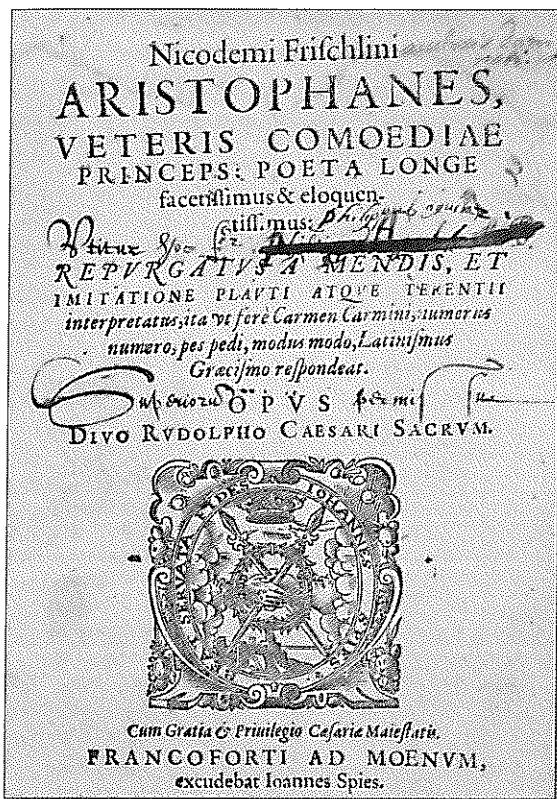 Nicodemi Friſchlini
ARISTOPHANES,
VETERIS COMOEDIAE
PRINCEPS: POETA LONGE
facetiſſimus & eloquen-
tiſſimus:
REPVRGATVS A MENDIS, ET
IMITATIONE PLAVTI ATQVE TERENTII
interpretatus, ita vt ferè Carmen Carmini, numerus
numero, pes pedi, modus modo, Latiniſmus
Græciſmo reſpondeat.
Superiorū permiſſu
OPVS
DIVO RVDOLPHO CAESARI SACRVM.
SERVATA FIDES IOHANNES SPIES
Cum Gratia & Priuilegio Cæſariæ Maieſtatis.
FRANCOFORTI AD MOENVM,
excudebat Ioannes Spies.